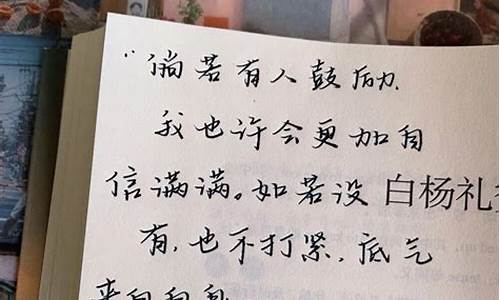 “倘若有人鼓励
我也许会更加自
信满满。如若没
白杨礼
有,也不打紧,底气
来自自身